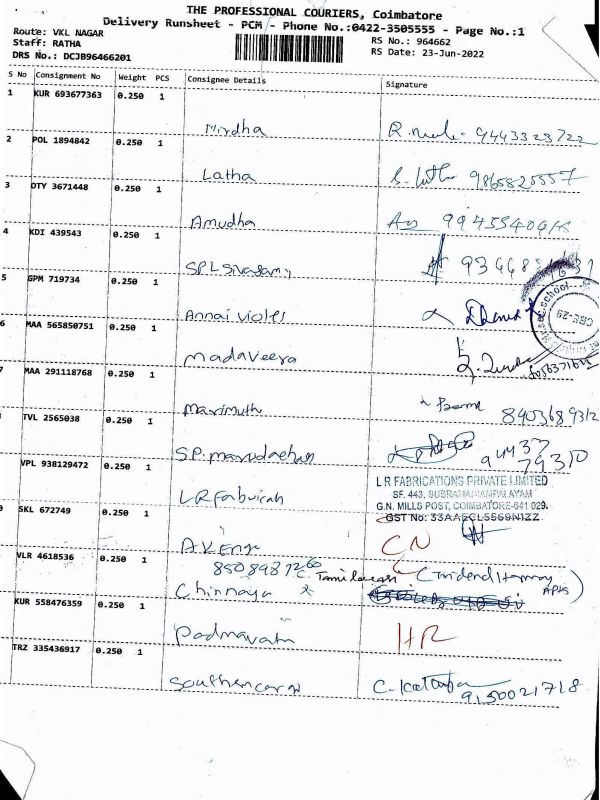 THE PROFESSIONAL COURIERS, Coimbatore
Delivery Runsheet - PCM - Phone No.:0422-3505555 - Page No.:1
Route: VKL NAGAR
Staff: RATHA
DRS No.: DCJB96466201
RS No.: 964662
RS Date: 23-Jun-2022
S No Consignment No Weight PCS Consignee Details Signature
1 KUR 693677363 0.250 1
Mirdha R. 9443323722
2 POL 1894842 0.250 1
Latha S. Latha 9865825557
3 OTY 3671448 0.250 1
Amudha
4 KDI 439543 0.250 1
SPL Sivasamy
5 GPM 719734 0.250 1
Annai violes
6 MAA 565850751 0.250 1
Madaveera
7 MAA 291118768 0.250 1
Marimuth 8403689312
TVL 2565038 0.250 1
S.P. 94437
79310
VPL 938129472 0.250 1
LR Fabricah
L R FABRICATIONS PRIVATE LIMITED
SF. 443, SUBRAMANIAMPALAYAM
G.N. MILLS POST, COIMBATORE-641 029.
GST No: 33AAECL5569N1ZZ
SKL 672749 0.250 1
A.V. Engr CN
VLR 4618536 0.250 1
8508987260
Chinnaya
KUR 558476359 0.250 1
Padmavath HR
TRZ 335436917 0.250 1
Southencargo 9150021718